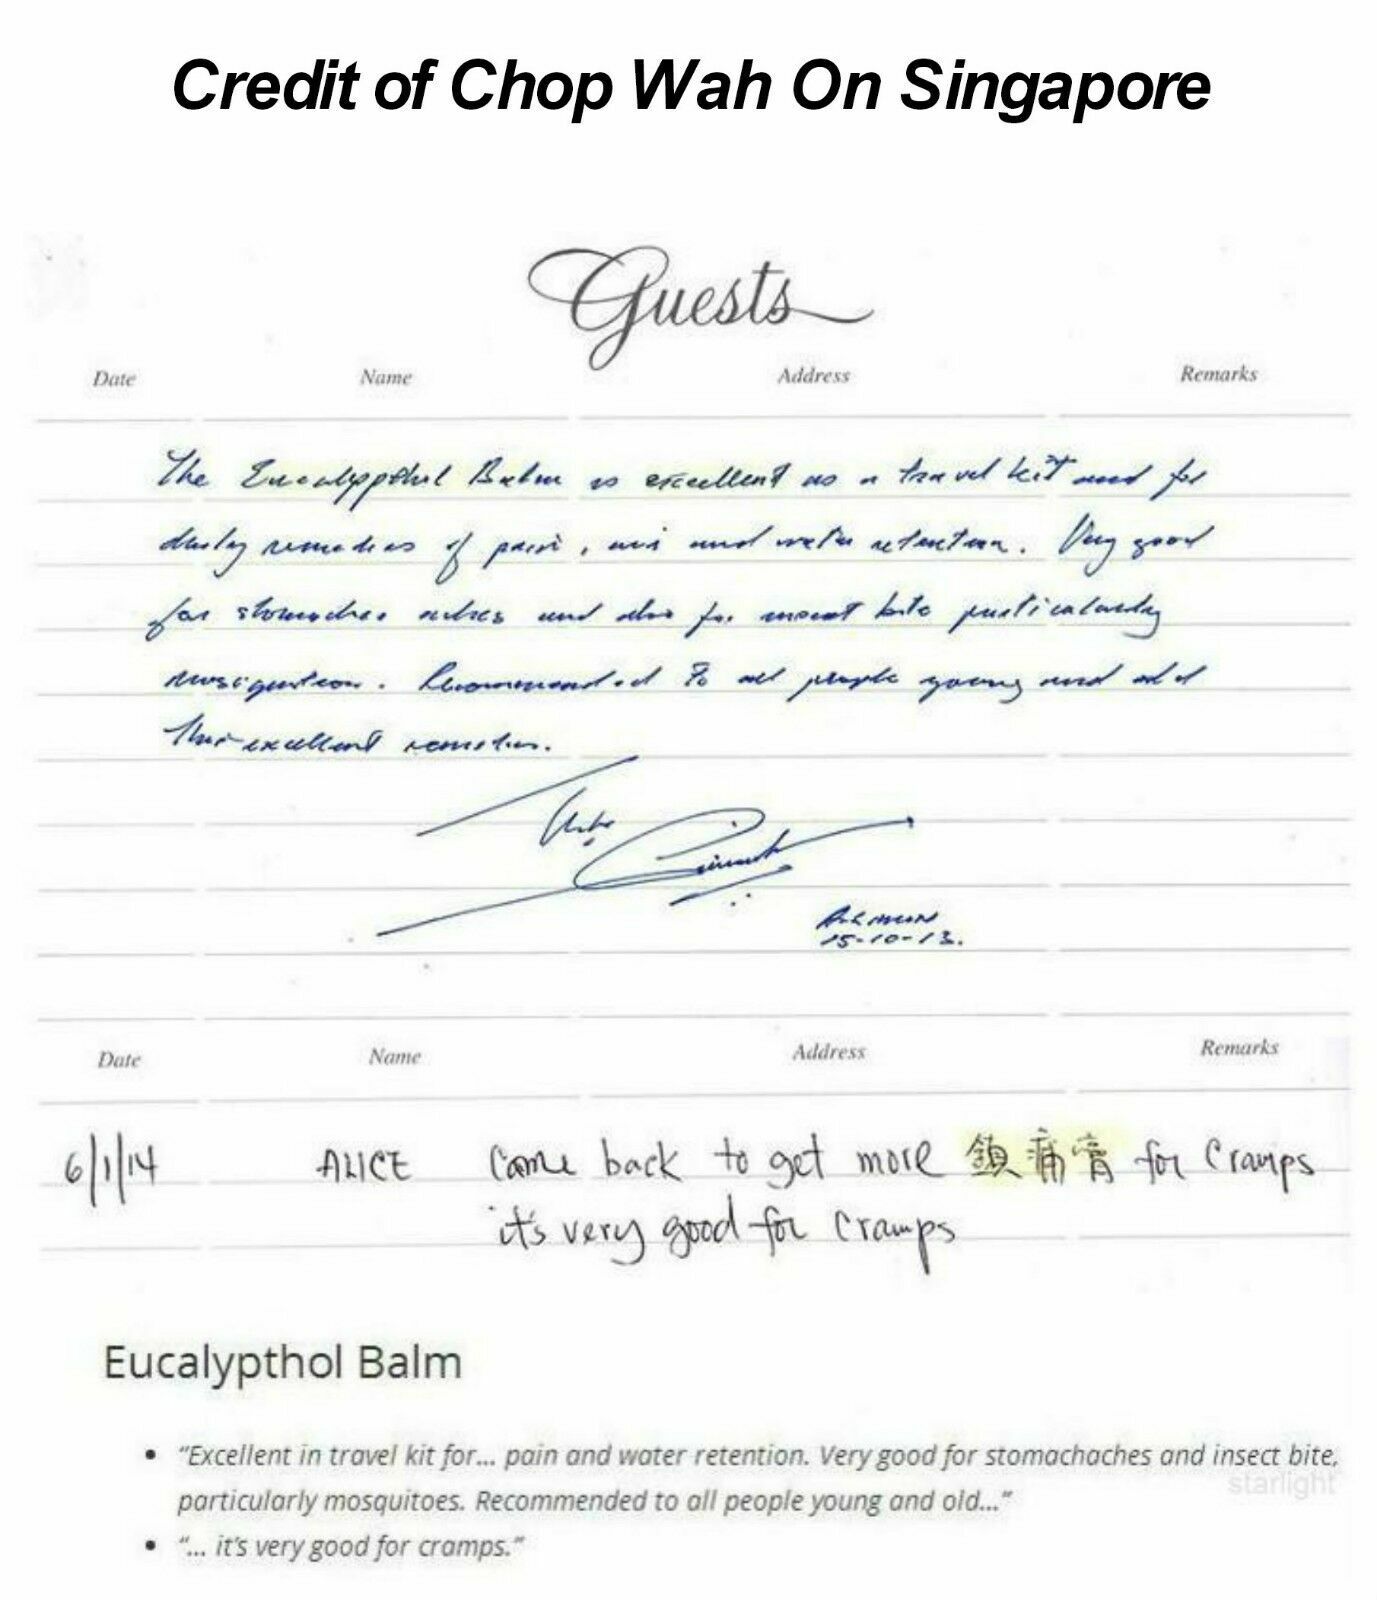 Credit of Chop Wah On Singapore
Guests
Date Name Address Remarks
The Eucalypthol Balm is excellent as a travel kit and for
daily remedies of pain, and water retention. Very good
for stomaches aches and also for insect bite particularly
Recommended to all people young and old
this excellent remedies.
15-10-13.
Date Name Address Remarks
6/1/14 ALICE Came back to get more 鎮痛膏 for cramps
it's very good for cramps
Eucalypthol Balm
• "Excellent in travel kit for... pain and water retention. Very good for stomachaches and insect bite,
particularly mosquitoes. Recommended to all people young and old..."
• "... it's very good for cramps."
starlight